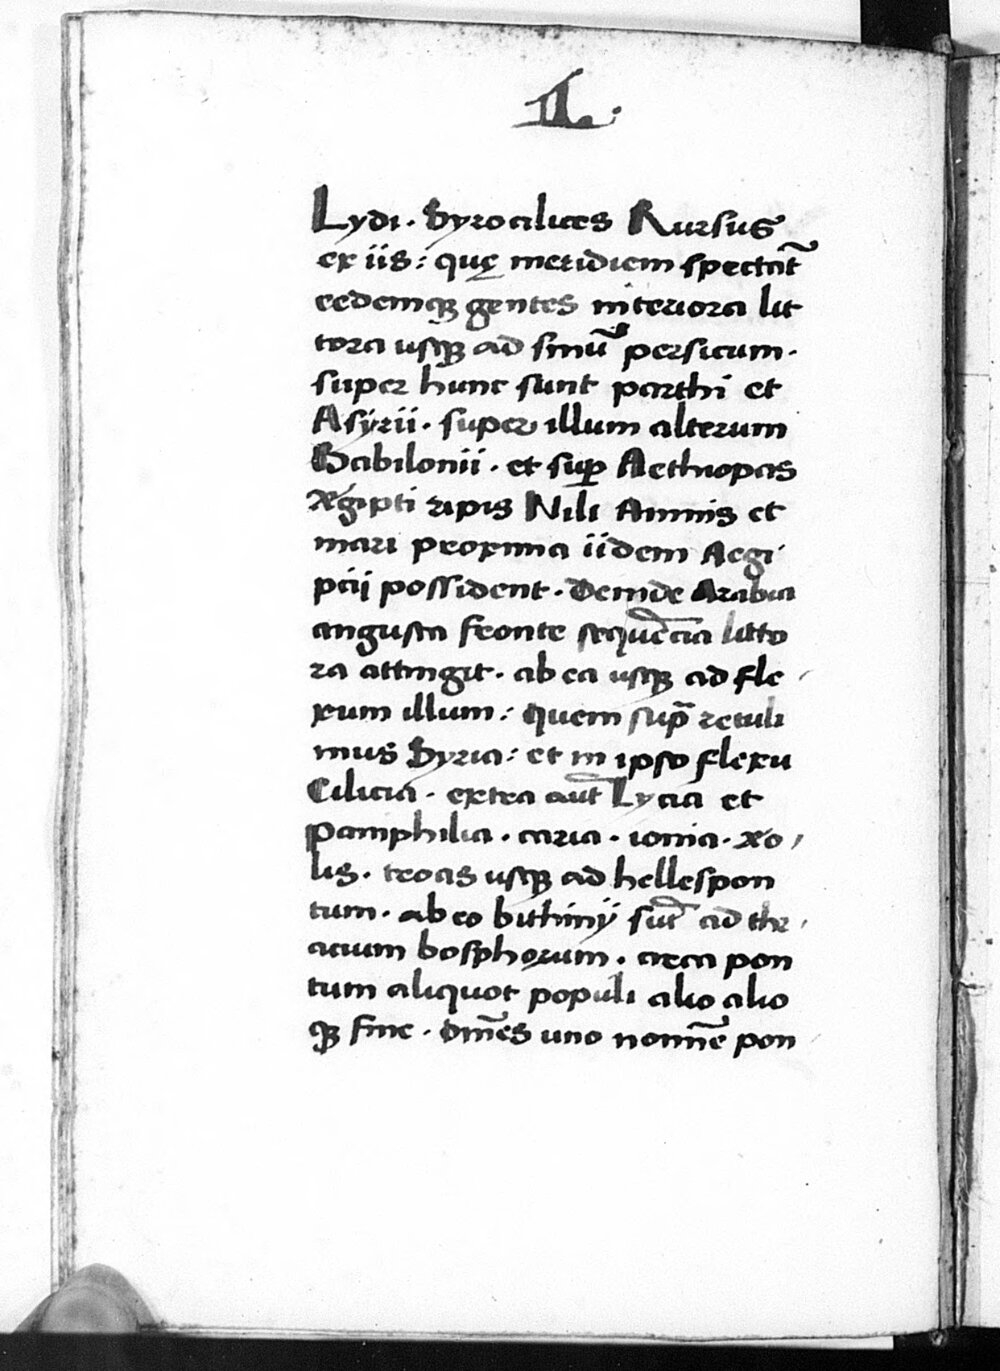 Lydi. Syrocilices Rursus
ex iis: quę meridiem spectāt
eedemqꝫ gentes interiora lit
tora usqꝫ ad sinū persicum.
super hunc sunt parthi et
Asyrii. super illum alterum
Babilonii. et suꝑ Aethiopas
Ægipti ripis Nili Amnis et
mari proxima iidem Aegi
ptij possident. Deinde Arabia
angusta fronte sequēcia litto
ra attingit. ab ea usqꝫ ad fle
xum illum: quem sup̄ retuli
mus Syria: et in ipso flexu
Cilicia. extra aut̄ Lycia et
pamphilia. caria. ionia. æo
lis. troas usqꝫ ad hellespon
tum. ab eo bithinÿ sūt ad thr
acium bosphorum. circa pon
tum aliquot populi alio alio
qꝫ fine. om̄es uno nomīe pon